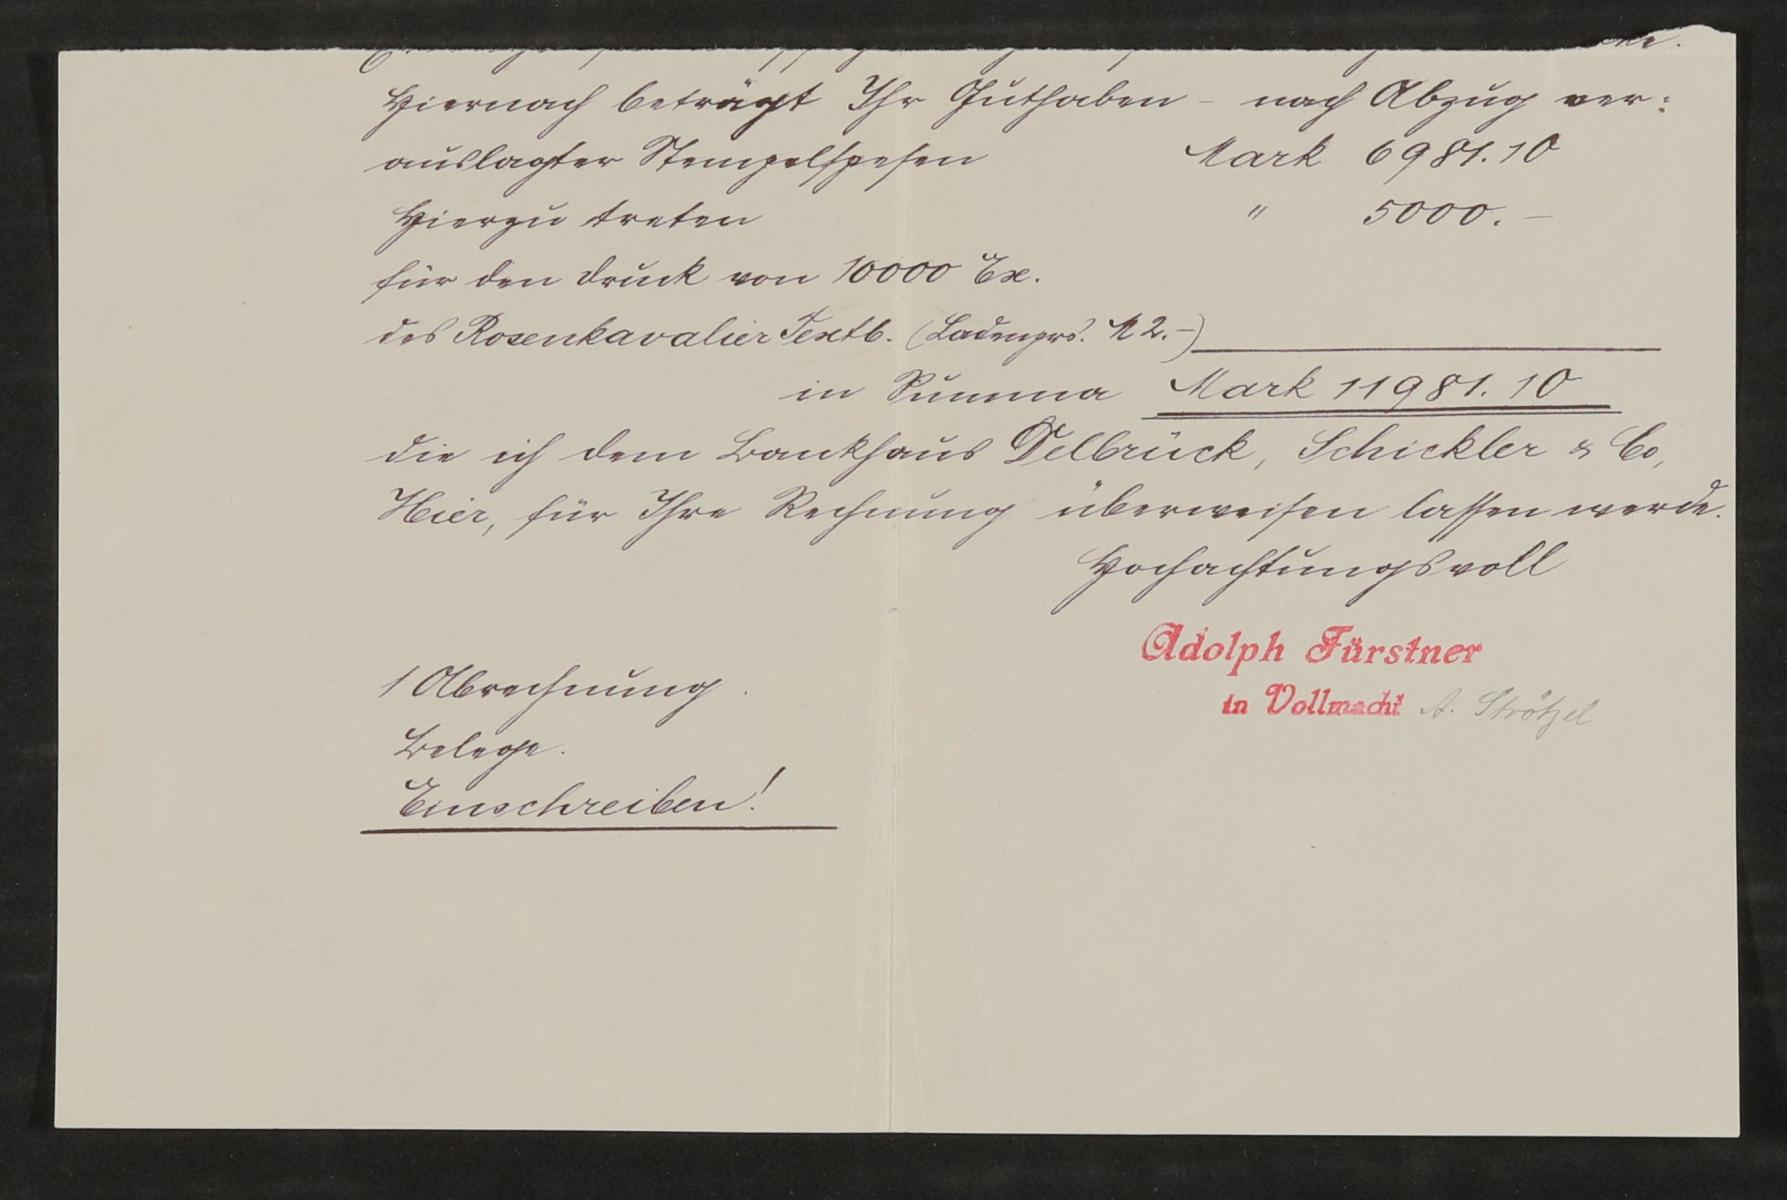 Hiernach beträgt Ihr Guthaben – nach Abzug ver:
auslagter Stempelspesen Mark 6981.10
Hierzu treten " 5000.–
für den Druck von 10000 Ex.
des Rosenkavalier Textb. (Ladenprs. M 2.–)
in Summa Mark 11981.10
die ich dem Bankhaus Delbrück, Schickler & Co,
Hier, für Ihre Rechnung überweisen lassen werde.
Hochachtungsvoll
Adolph Fürstner
in Vollmacht A. Strötzel
1 Abrechnung.
Belege.
Einschreiben!